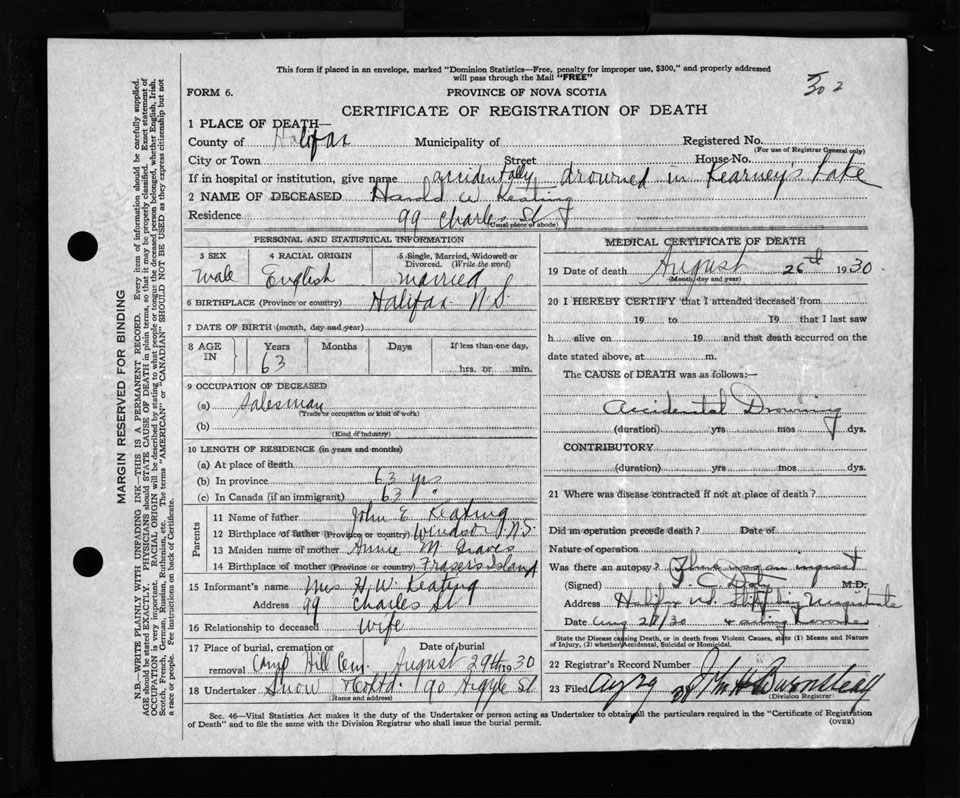 This form if placed in an envelope, marked "Dominion Statistics—Free, penalty for improper use, $300," and properly addressed
will pass through the Mail "FREE"
302
FORM 6.
PROVINCE OF NOVA SCOTIA
CERTIFICATE OF REGISTRATION OF DEATH
1 PLACE OF DEATH—
County of Halifax Municipality of Registered No.
(For use of Registrar General only)
City or Town Street House No.
If in hospital or institution, give name accidentally drowned in Kearney's Lake
2 NAME OF DECEASED Harold W. Keating
Residence 99 Charles St
(Usual place of abode)
PERSONAL AND STATISTICAL INFORMATION
3 SEX 4 RACIAL ORIGIN 5 Single, Married, Widowed or Divorced. (Write the word)
Male English married
6 BIRTHPLACE (Province or country) Halifax N.S.
7 DATE OF BIRTH (month, day and year)
8 AGE IN Years Months Days If less than one day,
63 hrs. or min.
9 OCCUPATION OF DECEASED
(a) Salesman
(Trade or occupation or kind of work)
(b)
(Kind of industry)
10 LENGTH OF RESIDENCE (in years and months)
(a) At place of death
(b) In province 63 yrs
(c) In Canada (if an immigrant) 63 "
Parents
11 Name of father John E Keating
12 Birthplace of father (Province or country) Windsor N.S.
13 Maiden name of mother Annie M Graves
14 Birthplace of mother (Province or country) Frasers Island
15 Informant's name Mrs H. W. Keating
Address 99 Charles St
16 Relationship to deceased wife
17 Place of burial, cremation or removal Date of burial
Camp Hill Cem. August 29th 1930
18 Undertaker Snow & Co Ltd. 90 Argyle St
(Name and address)
MEDICAL CERTIFICATE OF DEATH
19 Date of death August 26th 1930.
(Month, day and year)
20 I HEREBY CERTIFY that I attended deceased from
19 to 19 that I last saw
h alive on 19 and that death occurred on the
date stated above, at m.
The CAUSE of DEATH was as follows:—
Accidental Drowning
(duration) yrs mos dys.
CONTRIBUTORY
(duration) yrs mos dys.
21 Where was disease contracted if not at place of death?
Did an operation precede death? Date of
Nature of operation
Was there an autopsy? There was an inquest
(Signed) M.D.
Address Halifax Stipendiary Magistrate
Date Aug 27/30 & acting Coroner
State the Disease causing Death, or in death from Violent Causes, state (1) Means and Nature
of Injury, (2) whether Accidental, Suicidal or Homicidal.
22 Registrar's Record Number
23 Filed Aug 29
(Division Registrar)
Sec. 46—Vital Statistics Act makes it the duty of the Undertaker or person acting as Undertaker to obtain all the particulars required in the "Certificate of Registration
of Death" and to file the same with the Division Registrar who shall issue the burial permit.
(OVER)
MARGIN RESERVED FOR BINDING
N.B.—WRITE PLAINLY WITH UNFADING INK—THIS IS A PERMANENT RECORD. Every item of information should be carefully supplied.
AGE should be stated EXACTLY. PHYSICIANS should STATE CAUSE OF DEATH in plain terms, so that it may be properly classified. Exact statement of
OCCUPATION is very important. RACIAL ORIGIN will be described by stating to what people or tongue the deceased person belonged, whether English, Irish,
Scotch, French, German, Russian, Ruthenian, etc. The terms "AMERICAN" or "CANADIAN" SHOULD NOT BE USED as they express citizenship but not
a race or people. See instructions on back of Certificate.